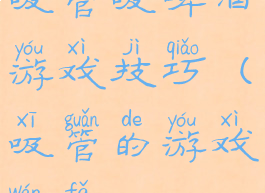 吸管吸啤酒
yóu xì jì qiǎo
游戏技巧（
xī guǎn de yóu xì
吸管的游戏
wán fǎ